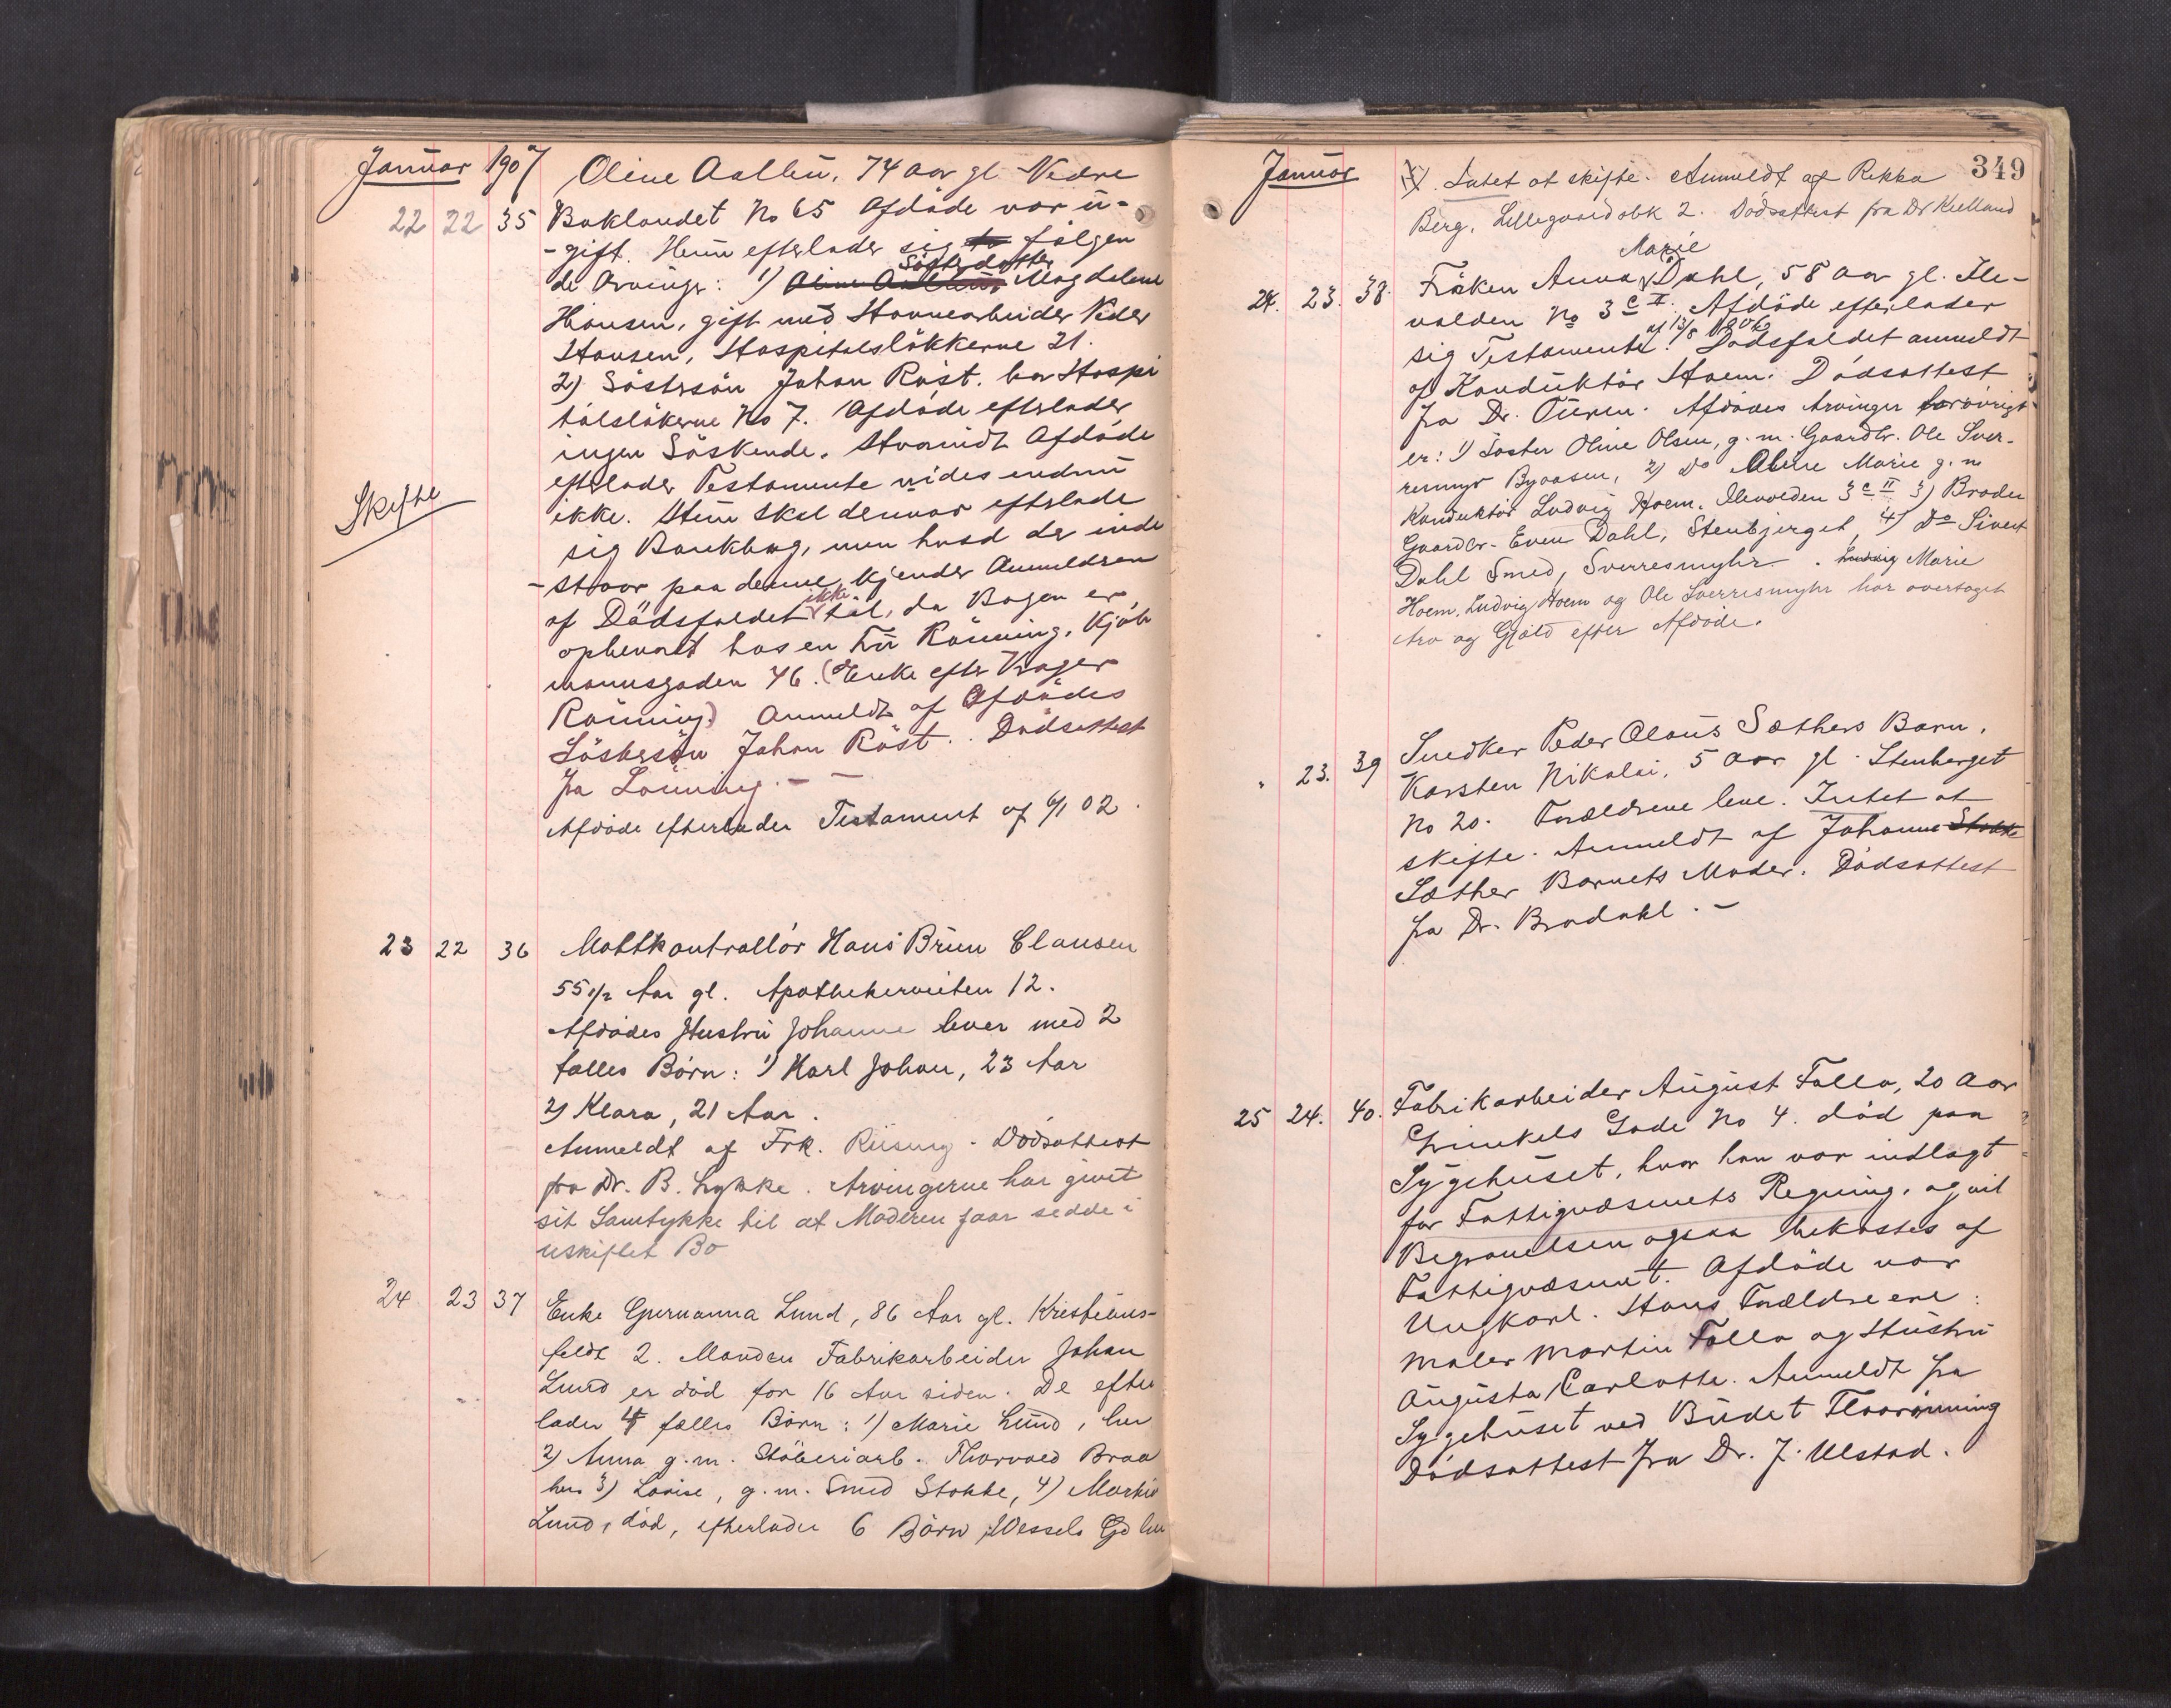 Januar 1907
Oline Aalbu, 74 Aar gl. Nedre
22 22 35 Baklandet No 65 Afdöde var u-
-gift. Hun efterlader sig to fölgen
Sösterdatter
de Arvinger: 1) Magdelene
Hansen, gift med Havnearbeider Peder
Hansen, Hospitalslökkerne 21.
2) Söstersön Johan Röst. bor Hospi
talslökerne No 7. Afdöde efterlader
ingen Söskende. Hvorvidt Afdöde
efterlader Testamente vides endnu
Skifte
ikke. Hun skal derimod efterlade
sig Bankbog, men hvad der inde
-staar paa denne, kjender Anmelderen
ikke
af Dödsfaldet til, da Bogen er
opbevart hos en Fru Rönning, Kjöb
mannsgaden 46. (Enke efter Vrager
Rönning) Anmeldt af Afdödes
Söstersön Johan Röst. Dödsattest
fra Lönning. —
Afdöde efterlader Testament af 6/1 02.
23 22 36 Maltkontrollör Hans Brun Clausen
55 1/2 Aar gl. Apothekerveiten 12.
Afdödes Hustru Johanne lever med 2
fælles Börn: 1) Karl Johan, 23 Aar
2) Klara, 21 Aar.
Anmeldt af Frk. Riising. Dödsattest
fra Dr. B. Lykke. Arvingerne har givet
sit Samtykke til at Moderen faar sedde i
uskiftet Bo
24 23 37 Enke Gurianna Lund, 86 Aar gl. Kristians-
feldt 2. Manden Fabrikarbeider Johan
Lund er död for 16 Aar siden. De efter
lader 4 fælles Börn: 1) Marie Lund, her
2) Anna g.m. Stöberiarb. Thorvald Braa
her 3) Lovise, g.m. Smed Stokke, 4) Martin
Lund, död, efterlader 6 Börn, Wessels Gd her
Januar
349
Intet at skifte. Anmeldt af Rikka
Berg, Lillegaardsbk 2. Dödsattest fra Dr Kielland
Marie
24. 23. 38. Fröken Anna Dahl, 58 Aar gl. Ile-
volden No 3 c II. Afdöde efterlader
af 13/8 1806
sig Testamente. Dödsfaldet anmeldt
af Konduktör Hoem. Dödsattest
fra Dr. Öuren. Afdödes Arvinger forövrigt
er: 1) Söster Oline Olsen, g.m. Gaardbr. Ole Sver-
resmyr Byaasen, 2) Do Marie g.m
Konduktör Ludvig Hoem. Ilevolden 3 c II 3) Broder
Gaardbr. Even Dahl, Stenbjerget, 4) Do Sivert
Dahl Smed, Sverresmyhr. Ludvig Marie
Hoem, Ludvig Hoem og Ole Sverresmyhr har overtaget
Arv og Gjæld efter Afdöde.
" 23. 39 Snedker Peder Claus Sæthers Barn,
Karsten Nikolai, 5 Aar gl. Stenberget
No 20. Forældrene leve. Intet at
skifte. Anmeldt af Johanne Stokke
Sæther Barnets Moder. Dödsattest
fra Dr. Bradahl. —
25 24. 40. Fabrikarbeider August Folla, 20 Aar
Gade No 4. död paa
Sygehuset, hvor han var indlagt
for Fattigvæsenets Regning, og vil
Begravelsen ogsaa bekostes af
Fattigvæsenet. Afdöde var
Ungkarl. Hans Forældre ere:
Maler Martin Folla og Hustru
Augusta Carlotte. Anmeldt fra
Sygehuset ved Budet Floorönning
Dödsattest fra Dr. J. Ulstad.